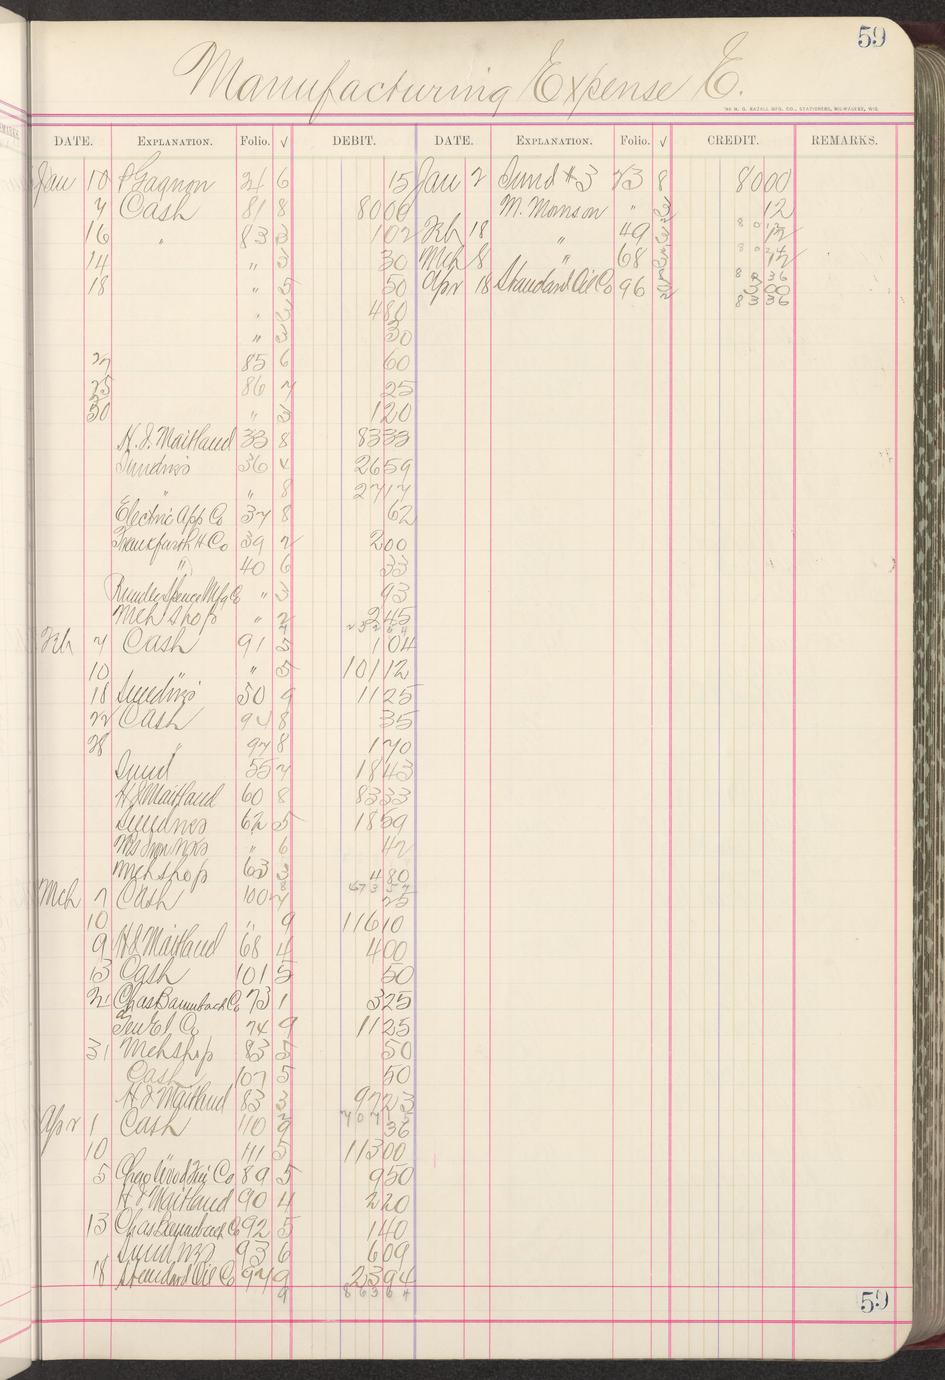 59
Manufacturing Expense E.
THE H. G. RAZALL MFG. CO., STATIONERS, MILWAUKEE, WIS.
DATE. EXPLANATION. Folio. √ DEBIT. DATE. EXPLANATION. Folio. √ CREDIT. REMARKS.
Jan 10 P Gagnon 24 6 15 Jan 2 Sund #3 73 8 8000
7 Cash 81 8 8000 M. Momson " 3 12
16 " 83 3 102 Feb 18 " 49
14 " 3 30 Mch 8 " 68
18 " 5 50 Apr 18 Standard Oil Co 96 300
" 3 480 8336
" 3 30
85 6 60
25 86 7 25
30 " 3 120
H. J. Maitland 33 8 8333
Sundries 36 4 2659
" " 8 2717
Electric App Co 37 8 62
Frankfurth H Co 39 2 200
" 40 6 33
Rundle Spence Mfg Co " 3 93
Mch shop " 2 245
Feb 7 Cash 91 5 104
10 " 5 10112
18 Sundries 50 9 1125
22 Cash 94 8 35
28 " 97 8 170
Sund 55 7 1843
H J Maitland 60 8 8333
Sundries 62 5 1859
" 6 42
Mch shop 63 3 480
67357
Mch 7 Cash 100 7 25
10 " 9 11610
9 H J Maitland 68 4 400
13 Cash 101 5 50
21 Chas Baumbach Co 73 1 325
74 9 1125
31 Mch shop 83 5 50
Cash 107 5 50
H J Maitland 83 3 9723
Apr 1 Cash 110 9 36
10 111 5 11300
5 89 5 950
H J Maitland 90 4 220
13 Chas Baumbach Co 92 5 140
Sundries 93 6 609
18 Standard Oil Co 94 9 2394
9 86364
59